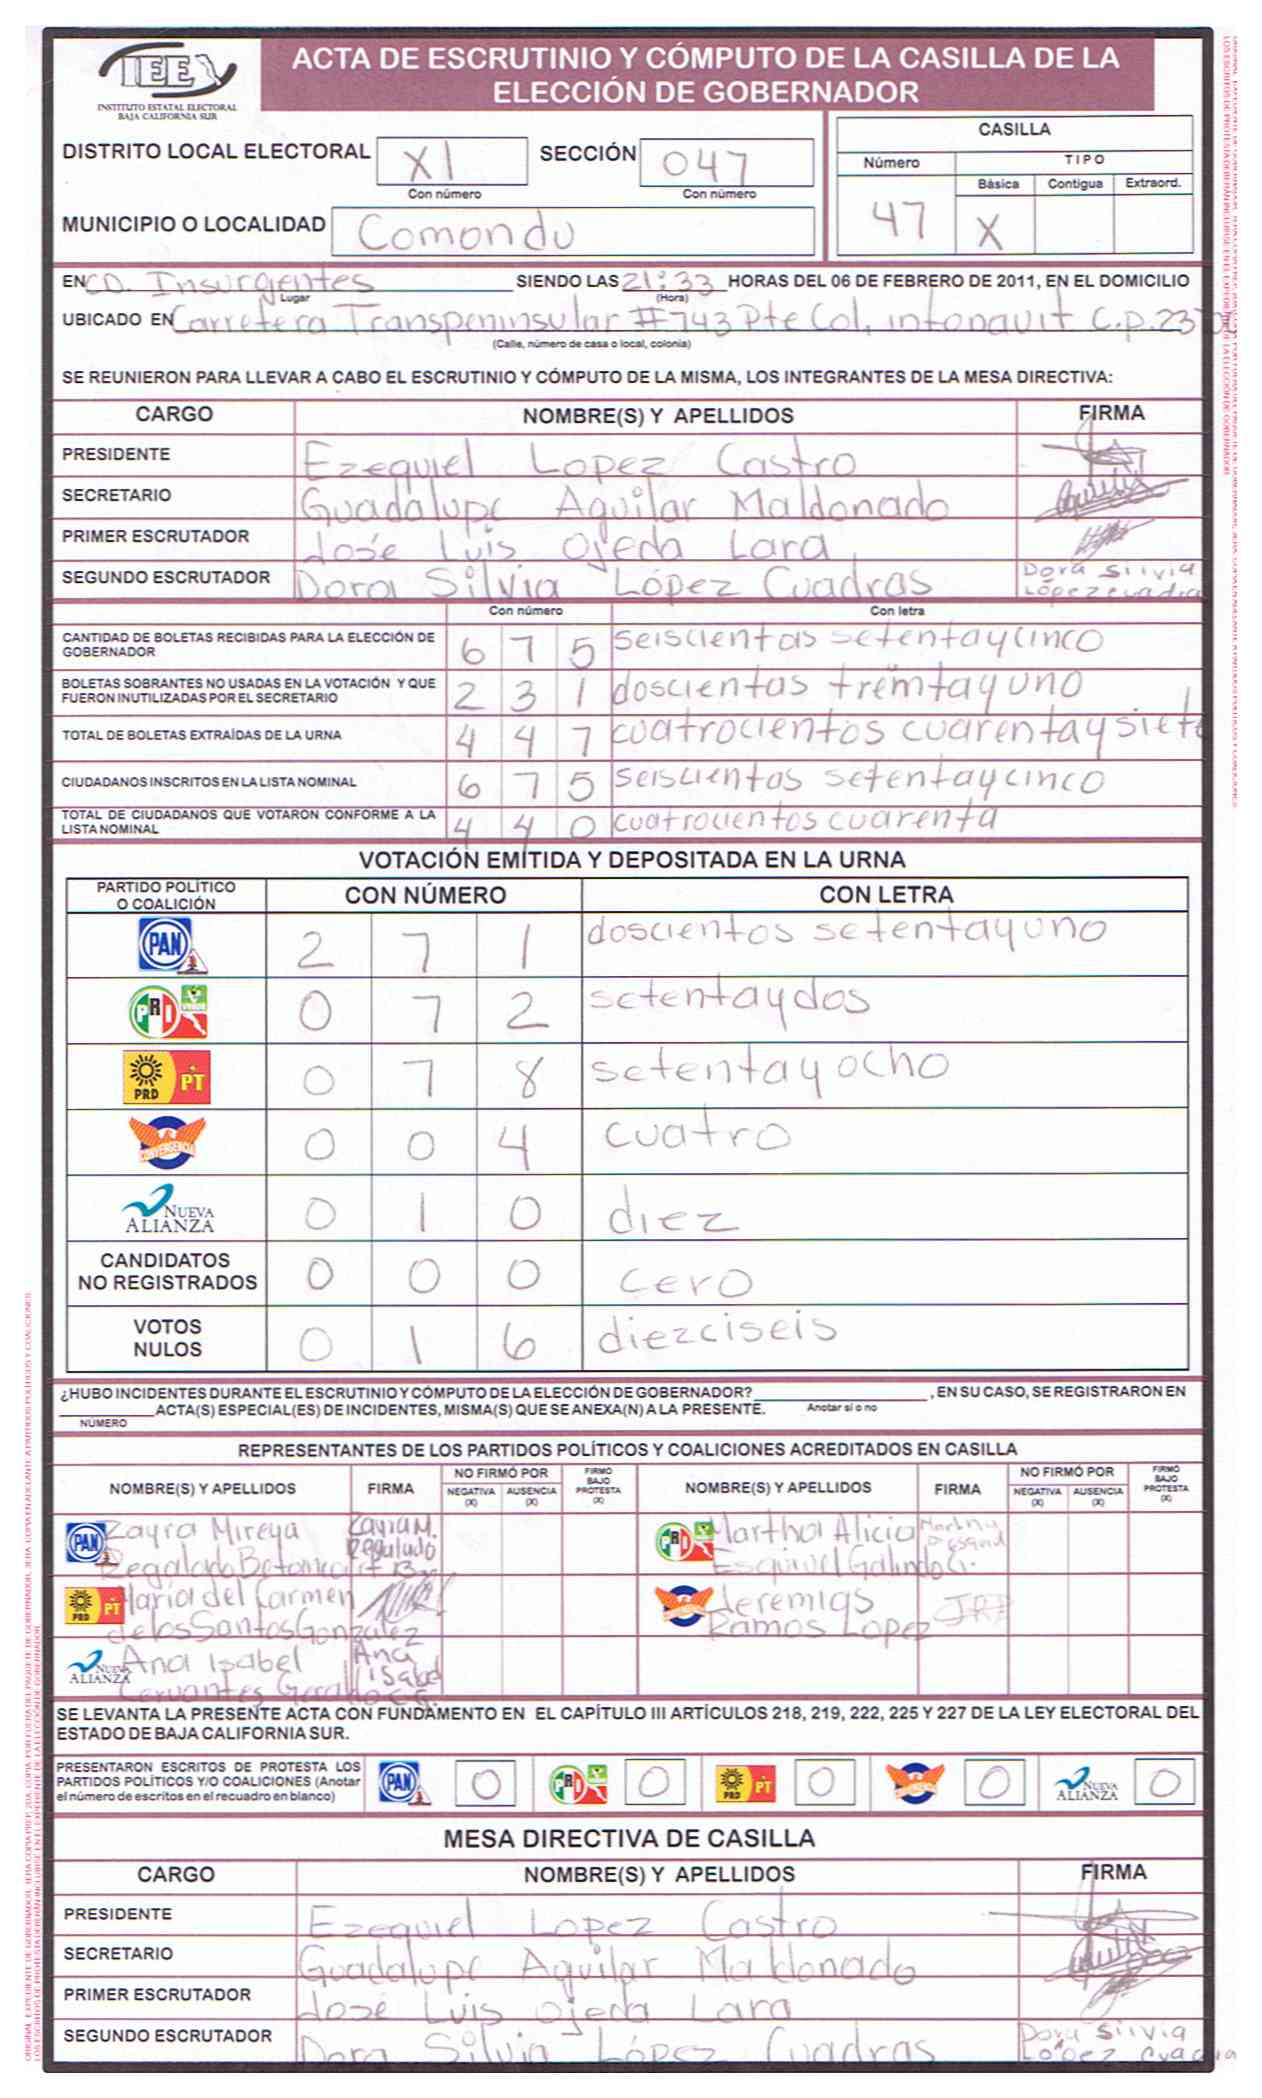 IEE
INSTITUTO ESTATAL ELECTORAL
BAJA CALIFORNIA SUR
ACTA DE ESCRUTINIO Y CÓMPUTO DE LA CASILLA DE LA
ELECCIÓN DE GOBERNADOR
DISTRITO LOCAL ELECTORAL XI SECCIÓN 047
Con número Con número
MUNICIPIO O LOCALIDAD Comondu
CASILLA
Número TIPO
Básica Contigua Extraord.
47 X
EN CD. Insurgentes SIENDO LAS 21:33 HORAS DEL 06 DE FEBRERO DE 2011, EN EL DOMICILIO
Lugar (Hora)
UBICADO EN Carretera Transpeninsular #743 Pte Col. infonavit C.p.
(Calle, número de casa o local, colonia)
SE REUNIERON PARA LLEVAR A CABO EL ESCRUTINIO Y CÓMPUTO DE LA MISMA, LOS INTEGRANTES DE LA MESA DIRECTIVA:
CARGO NOMBRE(S) Y APELLIDOS FIRMA
PRESIDENTE Ezequiel Lopez Castro
SECRETARIO Guadalupe Aguilar Maldonado
PRIMER ESCRUTADOR José Luis Ojeda Lara
SEGUNDO ESCRUTADOR Dora Silvia López Cuadras Dora Silvia
López Cuadra
Con número Con letra
CANTIDAD DE BOLETAS RECIBIDAS PARA LA ELECCIÓN DE
GOBERNADOR 6 7 5 seiscientas setentaycinco
BOLETAS SOBRANTES NO USADAS EN LA VOTACIÓN Y QUE
FUERON INUTILIZADAS POR EL SECRETARIO 2 3 1 doscientas treintayuno
TOTAL DE BOLETAS EXTRAÍDAS DE LA URNA 4 4 7 cuatrocientos cuarentaysiete
CIUDADANOS INSCRITOS EN LA LISTA NOMINAL 6 7 5 seiscientos setentaycinco
TOTAL DE CIUDADANOS QUE VOTARON CONFORME A LA
LISTA NOMINAL 4 4 0 cuatrocientos cuarenta
VOTACIÓN EMITIDA Y DEPOSITADA EN LA URNA
PARTIDO POLÍTICO
O COALICIÓN CON NÚMERO CON LETRA
PAN 2 7 1 doscientos setentayuno
PRI VERDE 0 7 2 setentaydos
PRD PT 0 7 8 setentayocho
CONVERGENCIA 0 0 4 cuatro
NUEVA
ALIANZA 0 1 0 diez
CANDIDATOS
NO REGISTRADOS 0 0 0 cero
VOTOS
NULOS 0 1 6 diezciseis
¿HUBO INCIDENTES DURANTE EL ESCRUTINIO Y CÓMPUTO DE LA ELECCIÓN DE GOBERNADOR? , EN SU CASO, SE REGISTRARON EN
ACTA(S) ESPECIAL(ES) DE INCIDENTES, MISMA(S) QUE SE ANEXA(N) A LA PRESENTE. Anotar sí o no
NÚMERO
REPRESENTANTES DE LOS PARTIDOS POLÍTICOS Y COALICIONES ACREDITADOS EN CASILLA
NOMBRE(S) Y APELLIDOS FIRMA NO FIRMÓ POR NEGATIVA (X) AUSENCIA (X) FIRMÓ BAJO PROTESTA (X) NOMBRE(S) Y APELLIDOS FIRMA NO FIRMÓ POR NEGATIVA (X) AUSENCIA (X) FIRMÓ BAJO PROTESTA (X)
PAN Zayra Mireya Zayra M. PRI Martha Alicia Martha
Regalado Regalado Esquivel Galindo G.
PRD PT María del Carmen Jeremias JRL
de los Santos González Ramos Lopez
NUEVA ALIANZA Ana Isabel Ana
Isabel
Cervantes C.G.
SE LEVANTA LA PRESENTE ACTA CON FUNDAMENTO EN EL CAPÍTULO III ARTÍCULOS 218, 219, 222, 225 Y 227 DE LA LEY ELECTORAL DEL
ESTADO DE BAJA CALIFORNIA SUR.
PRESENTARON ESCRITOS DE PROTESTA LOS
PARTIDOS POLÍTICOS Y/O COALICIONES (Anotar
el número de escritos en el recuadro en blanco)
PAN 0 PRI 0 PRD PT 0 0 NUEVA ALIANZA 0
MESA DIRECTIVA DE CASILLA
CARGO NOMBRE(S) Y APELLIDOS FIRMA
PRESIDENTE Ezequiel Lopez Castro
SECRETARIO Guadalupe Aguilar Maldonado
PRIMER ESCRUTADOR José Luis Ojeda Lara
SEGUNDO ESCRUTADOR Dora Silvia López Cuadras Dora Silvia
López Cuadra